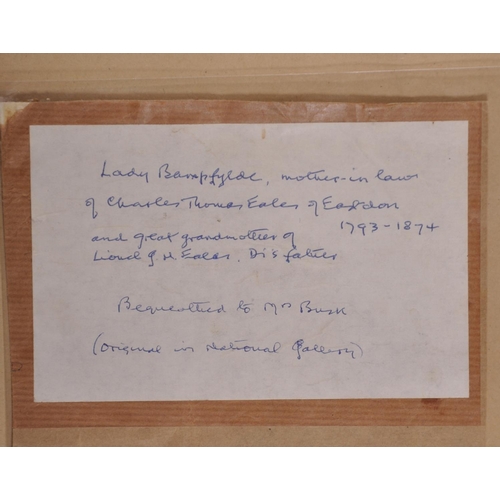 Lady Bampfylde, mother-in law
of Charles Thomas Eales of Eastdon
1793-1874
and great grandmother of
Lionel G H Eales. Di's father
Bequeathed to Mrs Busk
(original in National Gallery)